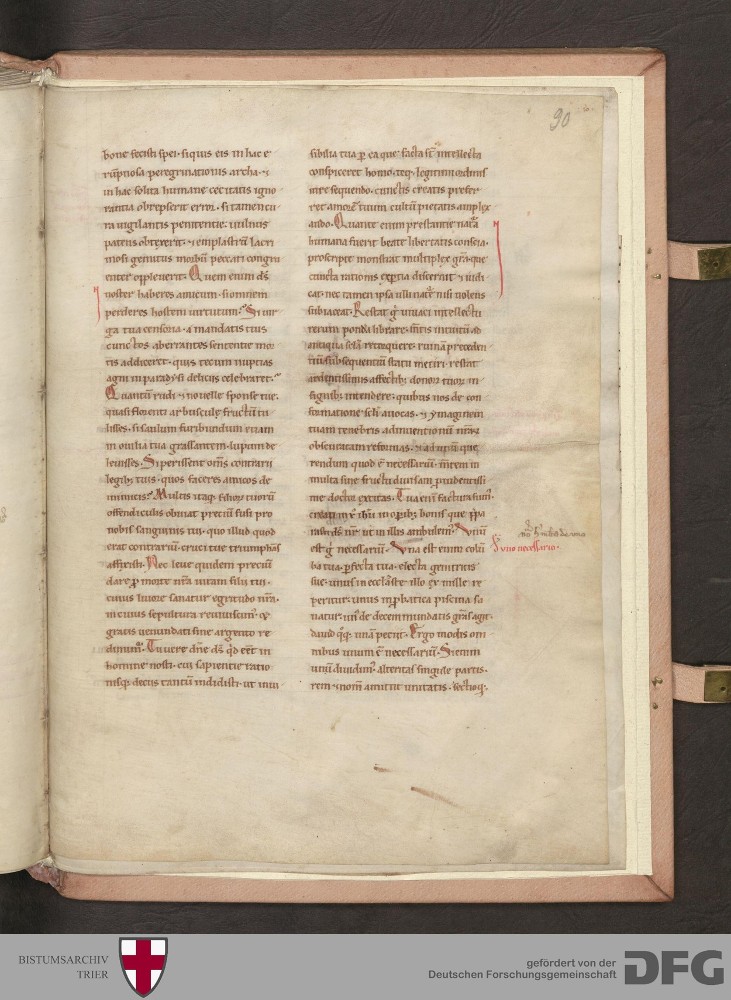 90
bone fecisti spei · siquis eis in hac e
rūpnosa peregrinationis archa · ⁊
in hac solita humane cecitatis igno
rantia obrepserit error · si tamen cu
ra uigilantis penitentie · uulnus
patens obtexerit · ⁊ emplastrū lacri
mosi gemitus morbū peccati congru
enter oppleuerit · Quem enim ds̄
noster haberes amicum · si omnem
perderes hostem uirtutum · Si uir
ga tua censoria · a mandatis tuis
cunctos aberrantes sententie mor
tis addiceret · quis tecum nuptias
agni in paradysi deliciis celebraret ·
Quantū rudi ⁊ nouelle sponse tue ·
quasi florenti arbuscule fructū tu
lisses · si saulum furibundum etiam
in ouilia tua grassantem · lupum de
leuisses · Si perissent om̄s contrarii
legib; tuis · quos faceres amicos de
inimicis · Multis itaq; scḣorum tuorū
offendiculis obuiat preciū fusi pro
nobis sanguinis tui · quo illud quod
erat contrariū · cruci tue triumphās
affixisti · Nec leue quidem preciū
dare p morte nr̄a uitam filii tui ·
cuius liuore sanatur egritudo nr̄a ·
in cuius sepultura reuiuiscim; · q
gratis uenundati sine argento re
dimimur · Tu uere dn̄e ds̄ qd̄ eēt in
homine nosti · cui sapientie ratio
nisq; decus tantū indidisti · ut inui
sibilia tua p ea que facta st̄ intellecta
conspiceret homo · teq; legitimi ordinis
iure sequendo · cunctis creatis prefer
ret amorē tuum cultū pietatis amplex
ando · Quante enim prestantie natā
humana fuerit beate libertatis conscia ·
proscripte monstrat multiplex gr̄a · que
cuncta rationis exptia discernit ⁊ iudi
cat · nec tamen ipsa ulli natē nisi nolens
subiaceat · Restat g uiuaci intellectu
rerum pondā librare · m̄tis intuitū ad
antiqua sclā retorquere · ruinā preceden
tiū subsequentiū statu metiri · restat
ardentissimis affectib; donor tuor in
signib; intendere · quibus nos de con
formatione scl̄i auocas · ⁊ ymaginem
tuam tenebris adinuentionū nr̄ar
obscuratam reformas · ⁊ ad unū que
rendum quod ē necessariū · m̄tem in
multa sine fructu diuisam prudentissi
me doctor excitas · Tua enī factura sum;
creati in xr̄o ihū in opib; bonis que ppa
rasti ds̄ nr̄ ut in illis ambulem; · Vnū
est g necessariū · Vna est enim colū
ba tua · pfecta tua · electa genitricis
sue · unus in ecclastre · illo ex mille re
peritur · unus in pbatica piscina sa
natur · un; de decem mundatis grās agit ·
dauid qq; unā petiit · Ergo modis om
nibus unum ē necessariū · Si enim
unū diuidim; · alteritas singule partis ·
rem ⁊ nom̄ amittit unitatis · Sectioq;
De uno necessario ·
BISTUMSARCHIV
TRIER
gefördert von der
Deutschen Forschungsgemeinschaft
DFG